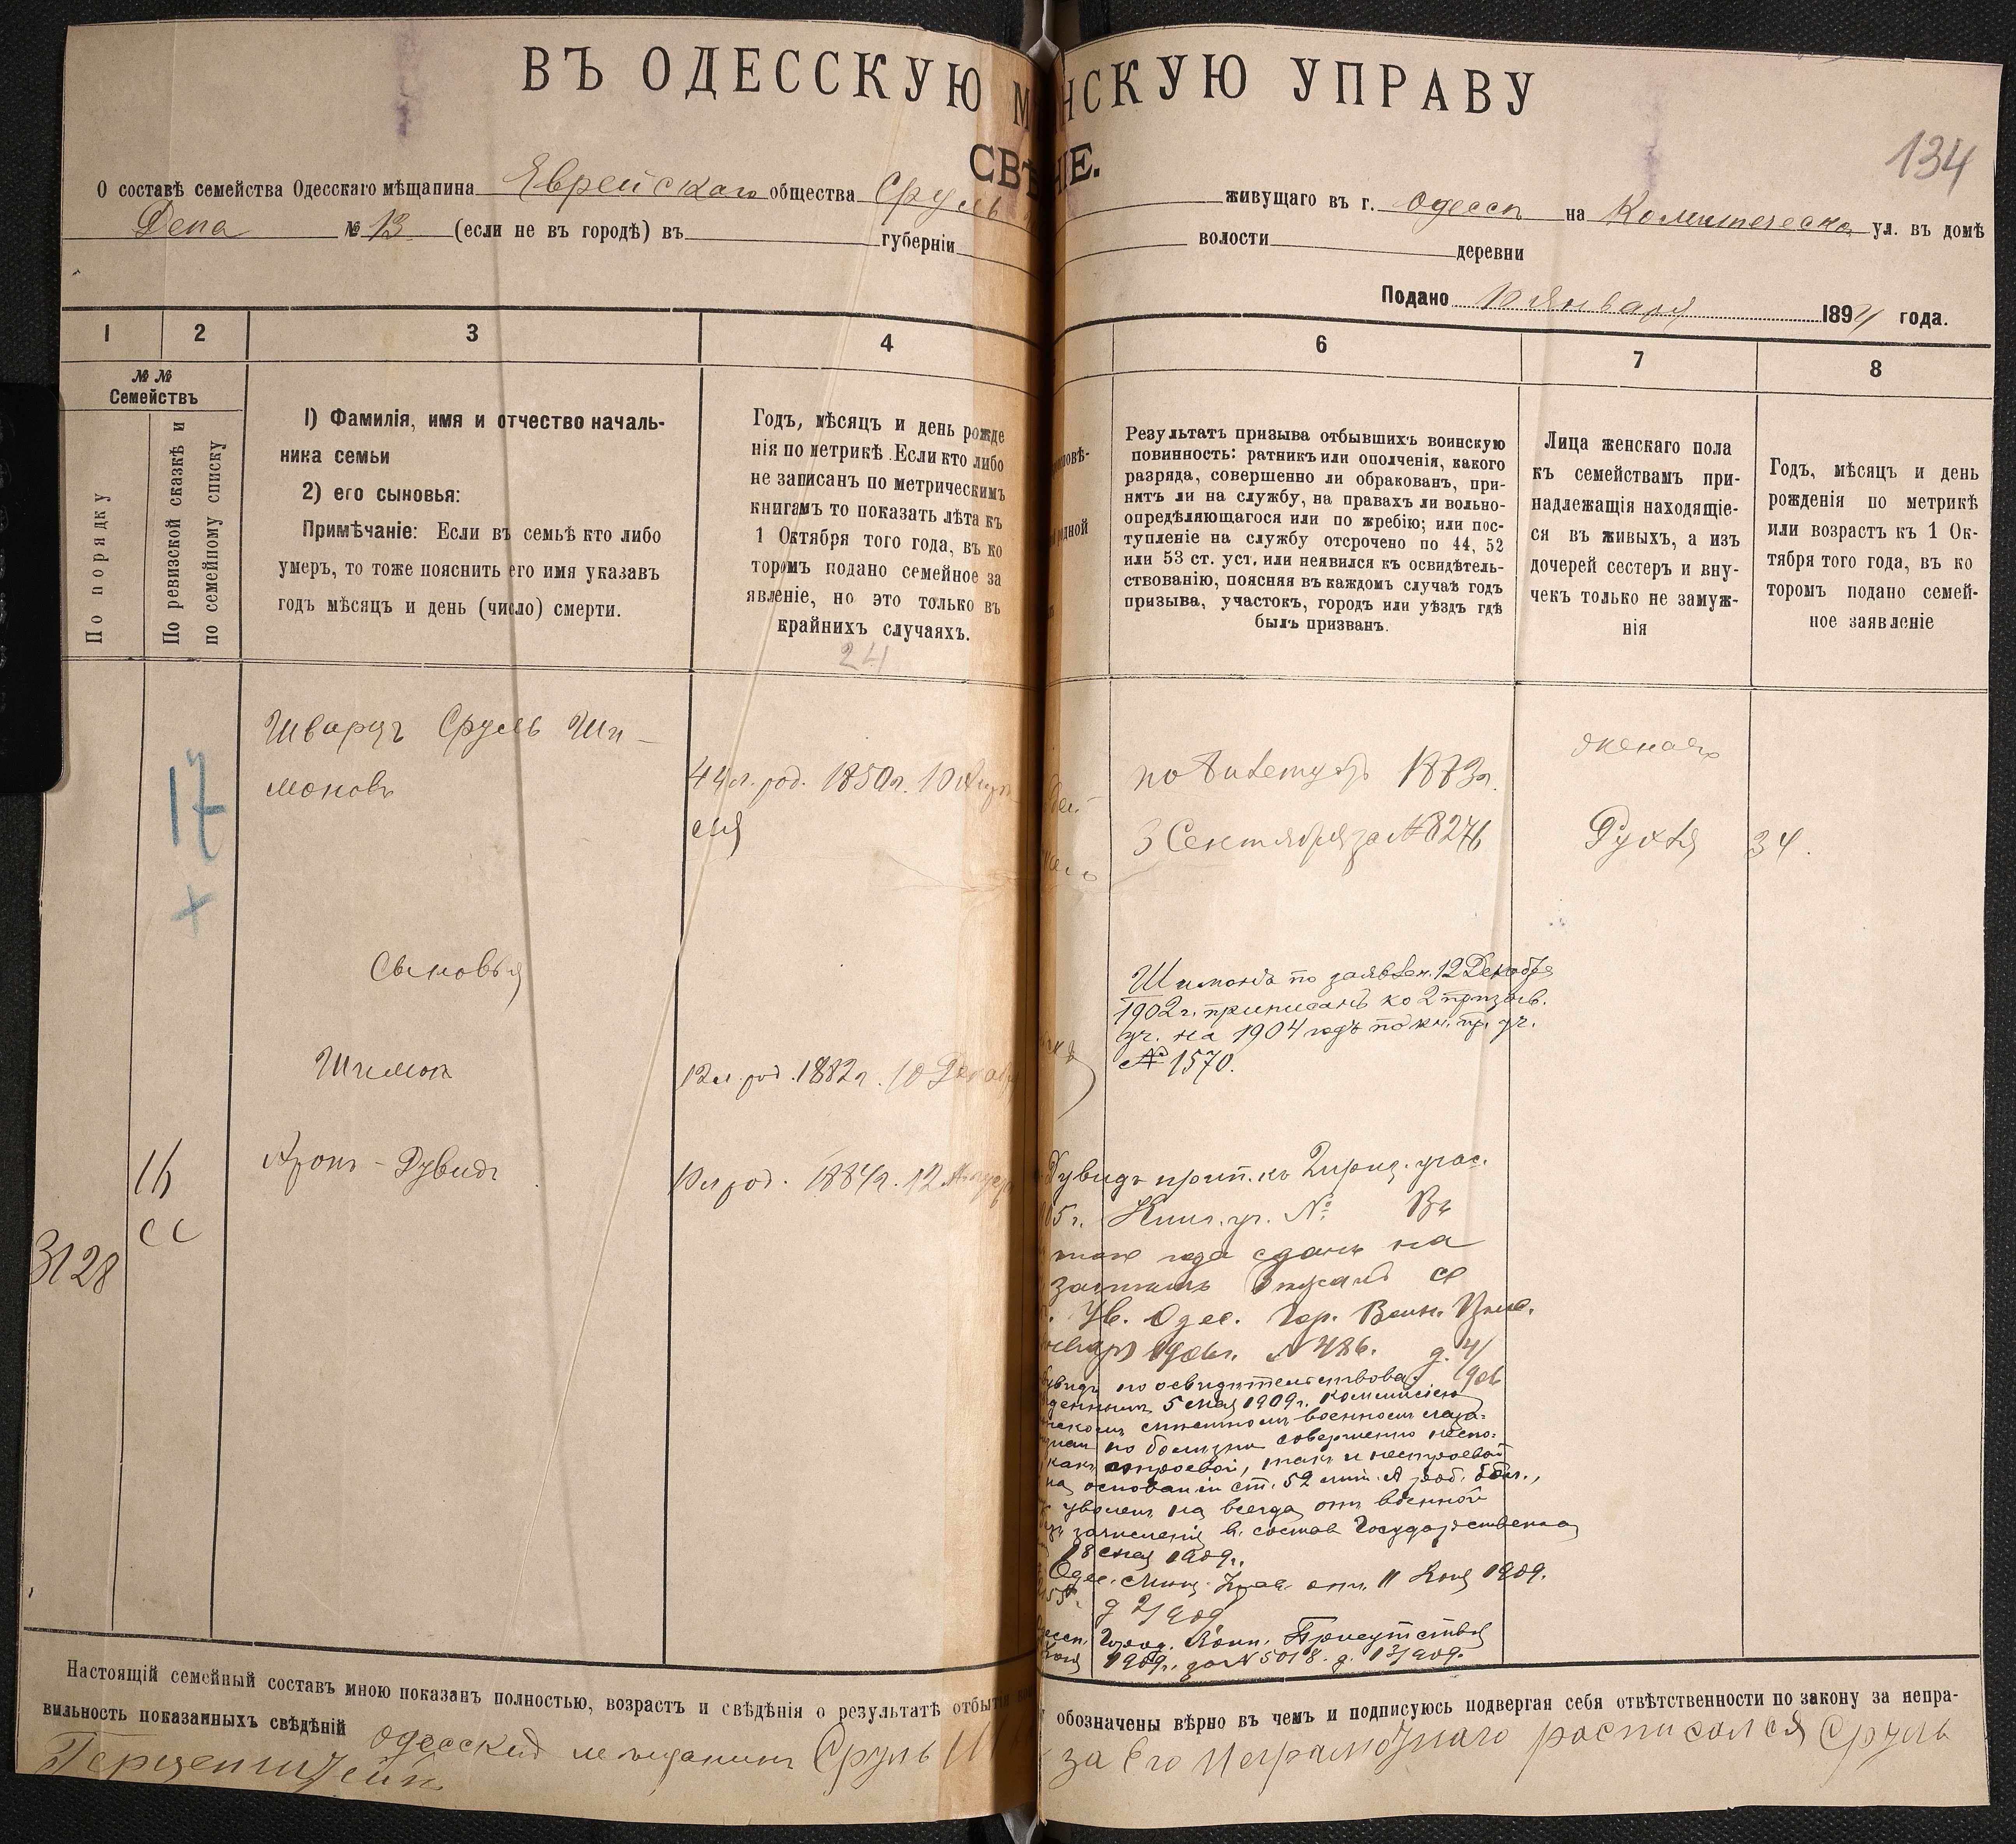 ВЪ ОДЕССКУЮ М НСКУЮ УПРАВУ
СВѢ НІЕ.
134
О составѣ семейства Одесскаго мѣщанина Еврейскаго общества Сруль живущаго въ г. Одессѣ на ул. въ домѣ
№ 13 (если не въ городѣ) въ губерніи волости деревни
Подано 10 Января 1894 года.
1 2 3 4 6 7 8
№ № Семействъ
По порядку
По ревизской сказкѣ и
по семейному списку
1) Фамилія, имя и отчество началь-
ника семьи
2) его сыновья:
Примѣчаніе: Если въ семьѣ кто либо
умеръ, то тоже пояснить его имя указавъ
годъ мѣсяцъ и день (число) смерти.
Годъ, мѣсяцъ и день рожде
нія по метрикѣ. Если кто либо
не записанъ по метрическимъ
книгамъ то показать лѣта къ
1 Октября того года, въ ко
торомъ подано семейное за
явленіе, но это только въ
крайнихъ случаяхъ.
24
Результатъ призыва отбывшихъ воинскую
повинность: ратникъ или ополченія, какого
разряда, совершенно ли обракованъ, при-
нятъ ли на службу, на правахъ ли вольно-
опредѣляющагося или по жребію; или пос-
тупленіе на службу отсрочено по 44, 52
или 53 ст. уст. или неявился къ освидѣтель-
ствованію, поясняя въ каждомъ случаѣ годъ
призыва, участокъ, городъ или уѣздъ гдѣ
былъ призванъ.
Лица женскаго пола
къ семействамъ при-
надлежащія находящіе-
ся въ живыхъ, а изъ
дочерей сестеръ и вну-
чекъ только не замуж-
нія
Годъ, мѣсяцъ и день
рожденія по метрикѣ
или возрастъ къ 1 Ок-
тября того года, въ ко
торомъ подано семей-
ное заявленіе
17
+
Шварцъ Сруль Ши-
моновъ
44 л. род. 1850 г. 10
еля
по 1873 г.
3 Сентября за № 8276
жена его
Рухля
34.
Сыновья
Шимонъ
12 л. род. 1882 г. 10 Декабр
Шимонъ по заявлен. 12 Декабря
1902 г. приписанъ ко 2 призыв.
уч. на 1904 годъ по кн. пр. уч.
№ 1570.
Аронъ-Дувидъ
10 л род. 1884 г. 12
3128
Дувидъ прип. къ 2 приз. учас.
05 г. уч. № Въ
того года сданъ на
Ув. Одес. Гор. Воин. Прис.
1906 г. № 486. д. 4/906
по освидѣтельствова-
5 мая 1909 г. коммиссіею
военномъ лаза-
по болѣзни совершенно неспо-
строевой, такъ и нестроевой
основаніи ст. 52 лит. А
уволенъ на всегда отъ военной
зачисленія въ составъ Государственна
18 мая 1909 г.
Одес. Мѣщ. Упра. отъ 11 1909.
д 2/909
Город. Воин. Присутствія
1909 г. за № 5018. д. 13/909.
Настоящій семейный составъ мною показанъ полностью, возрастъ и свѣдѣнія о результатѣ отбытія обозначены вѣрно въ чемъ и подписуюсь подвергая себя отвѣтственности по закону за непра-
вильность показанныхъ свѣдѣній одесскій мещанинъ Сруль за его неграмотнаго расписался Сруль